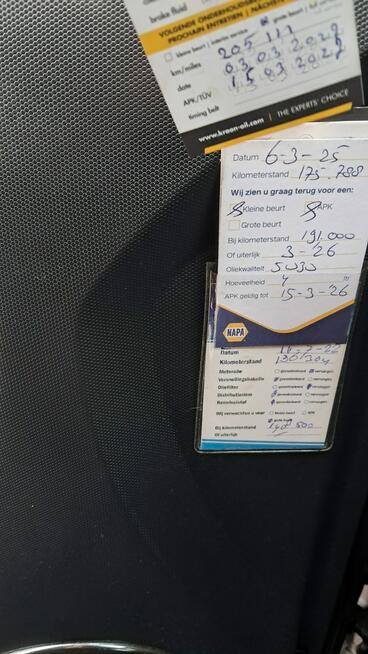 brake fluid
VOLGENDE ONDERHOUDSB
PROCHAIN ENTRETIEN / NÄCHSTEN
kleine beurt / interim service
grote beurt / full
km/miles 205 111
date 03 03 202
APK/TÜV 15 03 202
timing belt
www.kroon-oil.com | THE EXPERTS' CHOICE
Datum 6-3-25
Kilometerstand 175.788
Wij zien u graag terug voor een:
Kleine beurt APK
Grote beurt
Bij kilometerstand 191.000
Of uiterlijk 3-26
Oliekwaliteit 5W30
Hoeveelheid 4
APK geldig tot 15-3-26
NAPA
Datum
Kilometerstand
Motorolie
Versnellingsbakolie
Oliefilter
Distributieriem
Remvloeistof
Wij verwachten u voor
Bij kilometerstand
Of uiterlijk